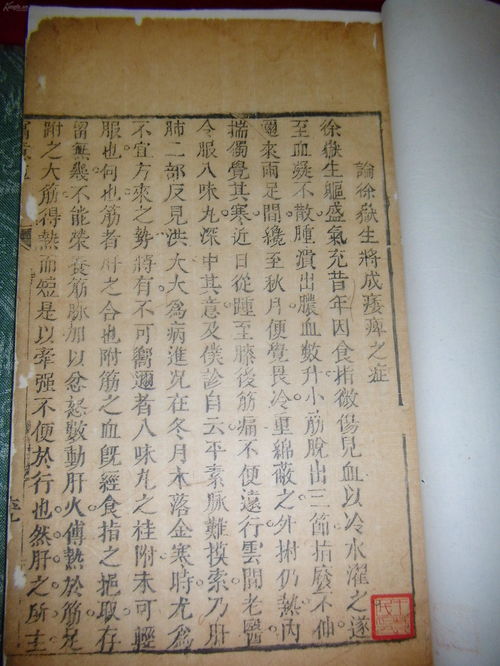 論徐嶽生將成痿痺之症
徐嶽生軀盛氣充昔年因食指微傷見血以冷水濯之遂
至血凝不散腫潰出膿血數升小筋脫出三節指廢不伸
邇來兩足間纔至秋月便覺畏冷重綿蔽之外拊仍熱內
揣獨覺其寒近日從踵至膝後筋痛不便遠行雲間老醫
令服八味丸深中其意及僕診自云平素脉難摸索乃肝
肺二部反見洪大大為病進況在冬月木落金寒時尤為
不宜方來之勢將有不可嚮邇者八味丸之桂附未可輕
服也何也筋者肝之合也附筋之血既經食指之挹取存
留無幾不能榮養筋脉加以忿怒數動肝火傅熱於筋足
跗之大筋得熱而短是以牽强不便於行也然肝之所主